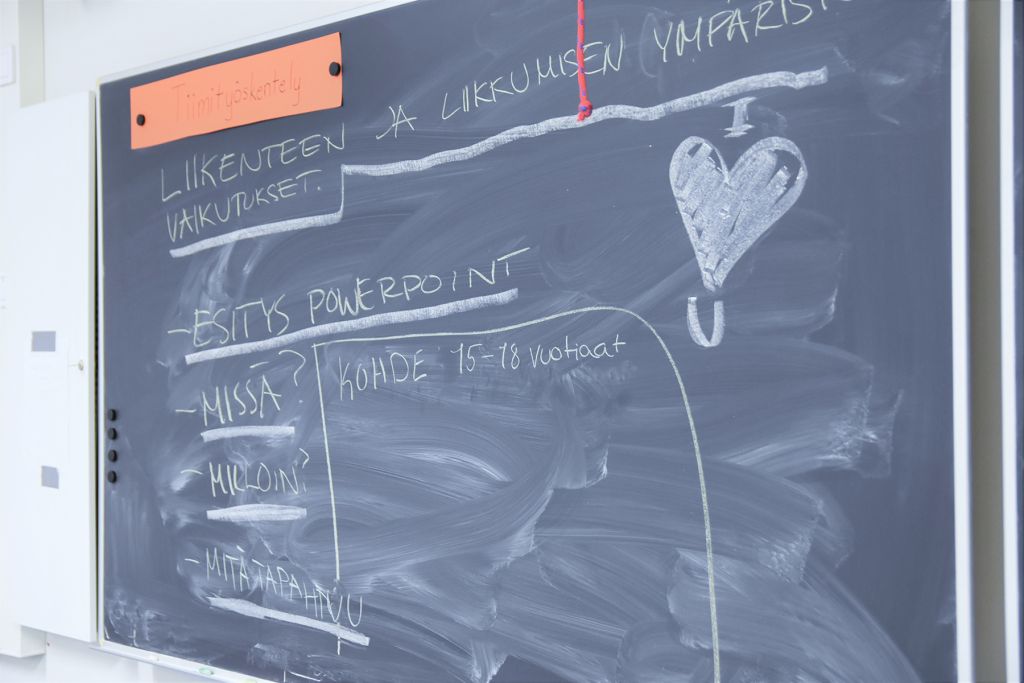 Tiimityöskentely
LIIKENTEEN JA LIIKKUMISEN YMPÄRIST
VAIKUTUKSET.
I
U
-ESITYS POWERPOINT
-MISSÄ?
KOHDE 15-18 vuotiaat
-MILLOIN?
-MITÄ TAPAHTUU